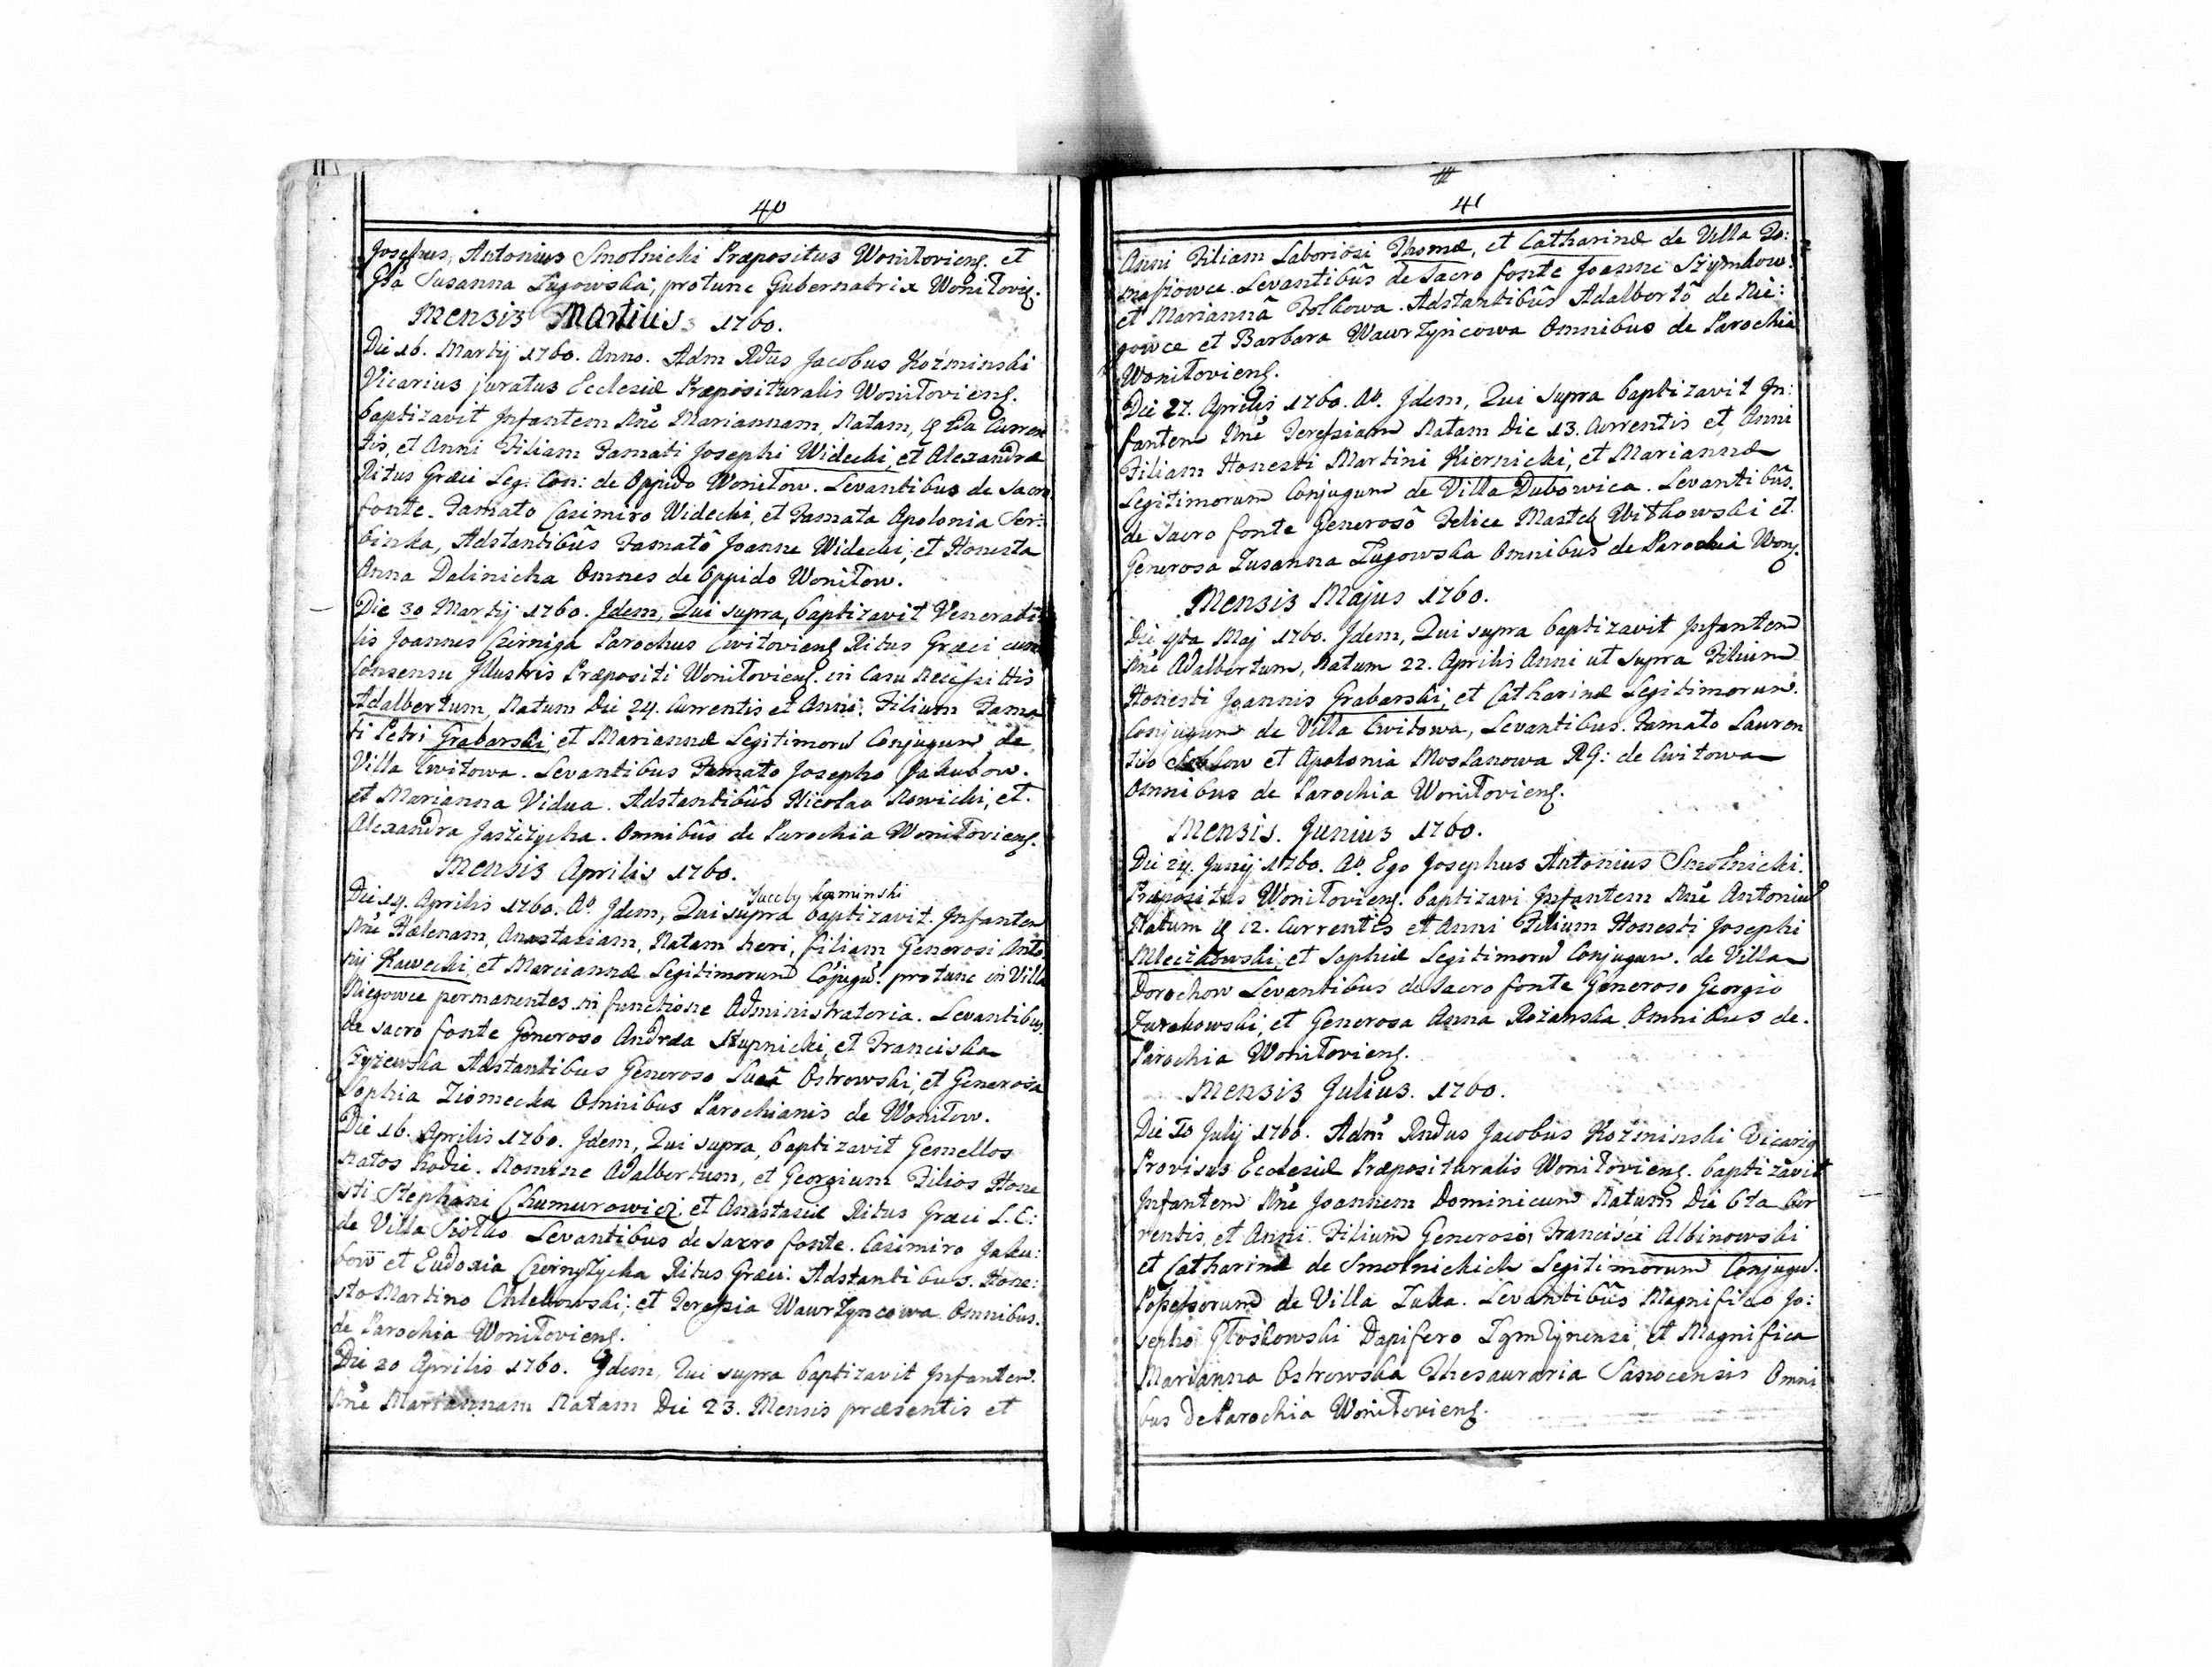 40
Josephus, Antonius Smolnicki Præpositus Woniłovieng. et
Susanna Ługowska, protunc Gubernatrix Woniłovig.
Mensis Martius 1760.
Die 16. Martij 1760. Anno. Adm Rdus Jacobus Koźminski
Vicarius juratus Ecclesiæ Præposituralis Woniłovieng.
baptizavit Infantem Nne Mariannam, Natam, Curren
tis, et Anni Filiam Famati Josephi Widecki, et Alexandræ
Ritus Græci Leg: Con: de Oppido Woniłow. Levantibus de Sacro
fonte. Famato Casimiro Widecki, et Famata Apolonia Ser:
binka, Adstantibûs Famatô Joanne Widecki, et Honesta
Anna Dalinicka Omnes de Oppido Woniłow.
Die 30 Martij 1760. Idem, Qui supra, baptizavit Venerabi
lis Joannes Czerniga Parochus Cwitovieng Ritus Græci cum
Consensu Illustris Præpositi Woniłovieng. in Casu Necessittis
Adalbertum, Natum Die 24. Currentis et Anni. Filium Fama
ti Petri Grabarski, et Mariannæ Legitimorũ Conjugum de
Villa Cwitowa. Levantibus Famato Josepho Jakubow.
et Marianna Vidua. Adstantibûs Nicolao Nowicki, et.
Alexandra Jaszczycka. Omnibûs de Parochia Woniłovieng.
Mensis Aprilis 1760.
Jacoby Kozminski
Die 14. Aprilis 1760. Ao. Idem, Qui supra baptizavit. Infantem
Nne Hælenam, Anastasiam, Natam heri, filiam Generosi Anto
nij Kawecki, et Marciannæ Legitimorum Cojugũ. protunc in Villa
Niegowce permanentes in functione Administratoria. Levantibus
de sacro fonte Generoso Andrea Stupnicki, et Franciska
Zyzewska Adstantibus Generoso Lucâ Ostrowski, et Generosa
Sophia Ziomecka Omnibus Parochianis de Woniłow.
Die 16. Aprilis 1760. Idem, Qui supra, baptizavit Gemellos
Natos hodie. Nomine Adalbertum, et Georgium Filios Hone
sti Stephani Chumurowicz, et Anastasiæ Ritus Græci L. C:
de Villa Siołko Levantibus de sacro fonte. Casimiro Jaku:
bow et Eudoxia Czernyżycka Ritus Græci. Adstantibus. Hone:
sto Martino Chlebowski, et Teressia Wawrzyncowa Omnibus.
de Parochia Woniłovieng.
Die 20 Aprilis 1760. Idem, Qui supra baptizavit Infantem.
Nne Mariannam Natam Die 23. Mensis præsentis et
41
Anni Filiam Laboriosi Thomæ, et Catharinæ de Villa To:
masiowce. Levantibûs de Sacro fonte Joanne Szymkow:
et Mariannâ Folkowa. Adstantibûs Adalbertô de Nie:
gowce et Barbara Wawrzyncowa Omnibus de Parochia
Woniłovieng.
Die 27. Aprilis 1760. Ao. Idem, Qui supra baptizavit In:
fantem Nne Teressiam Natam Die 13. Currentis et Anni
Filiam Honesti Martini Kiernicki, et Mariannæ
Legitimorum Conjugum de Villa Dubowica. Levantibûs.
de Sacro fonte Generosô Felice Mastek Witkowski et.
Generosa Zusanna Ługowska Omnibus de Parochia Wong.
Mensis Majus 1760.
Die 4ta Maj 1760. Idem, Qui supra baptizavit Infantem
Nne Adalbertum, Natum 22. Aprilis Anni ut supra Filium
Honesti Joannis Grabarski, et Catharinæ Legitimorum.
Conjugum de Villa Cwitowa, Levantibus. Famato Lauren
tio et Apolonia Mostanowa RG: de Cwitowa
Omnibus de Parochia Woniłovieng.
Mensis. Junius 1760.
Die 24. Junij 1760. Ao. Ego Josephus Antonius Smolnicki.
Præpositus Woniłovieng. baptizavi Infantem Nne Antoniũ
Natum 12. Currentis et Anni Filium Honesti Josephi
Mleczkowski, et Sophiæ Legitimorũ Conjugum. de Villa
Dorochow Levantibus de Sacro fonte Generoso Georgio
Zurakowski, et Generosa Anna Rożanska Omnibus de.
Parochia Woniłovieng.
Mensis Julius. 1760.
Die 10 Julij 1760. Adm Rndus Jacobus Koźminski Vicarig
Provisus Ecclesiæ Præposituralis Woniłovieng. baptizavit
Infantem Nne Joannem Dominicum Natum Die 6ta Cur
rentis, et Anni. Filium Generosi, Francisci Albinowski
et Catharinæ de Smolnickich Legitimorum Conjugũ.
Possessorum de Villa Łuka. Levantibûs Magnifico Jo:
sepho Głoskowski Dapifero Zymzynensi, et Magnifica
Marianna Ostrowska Thesauraria Sanocensis Omni
bus de Parochia Woniłovieng.